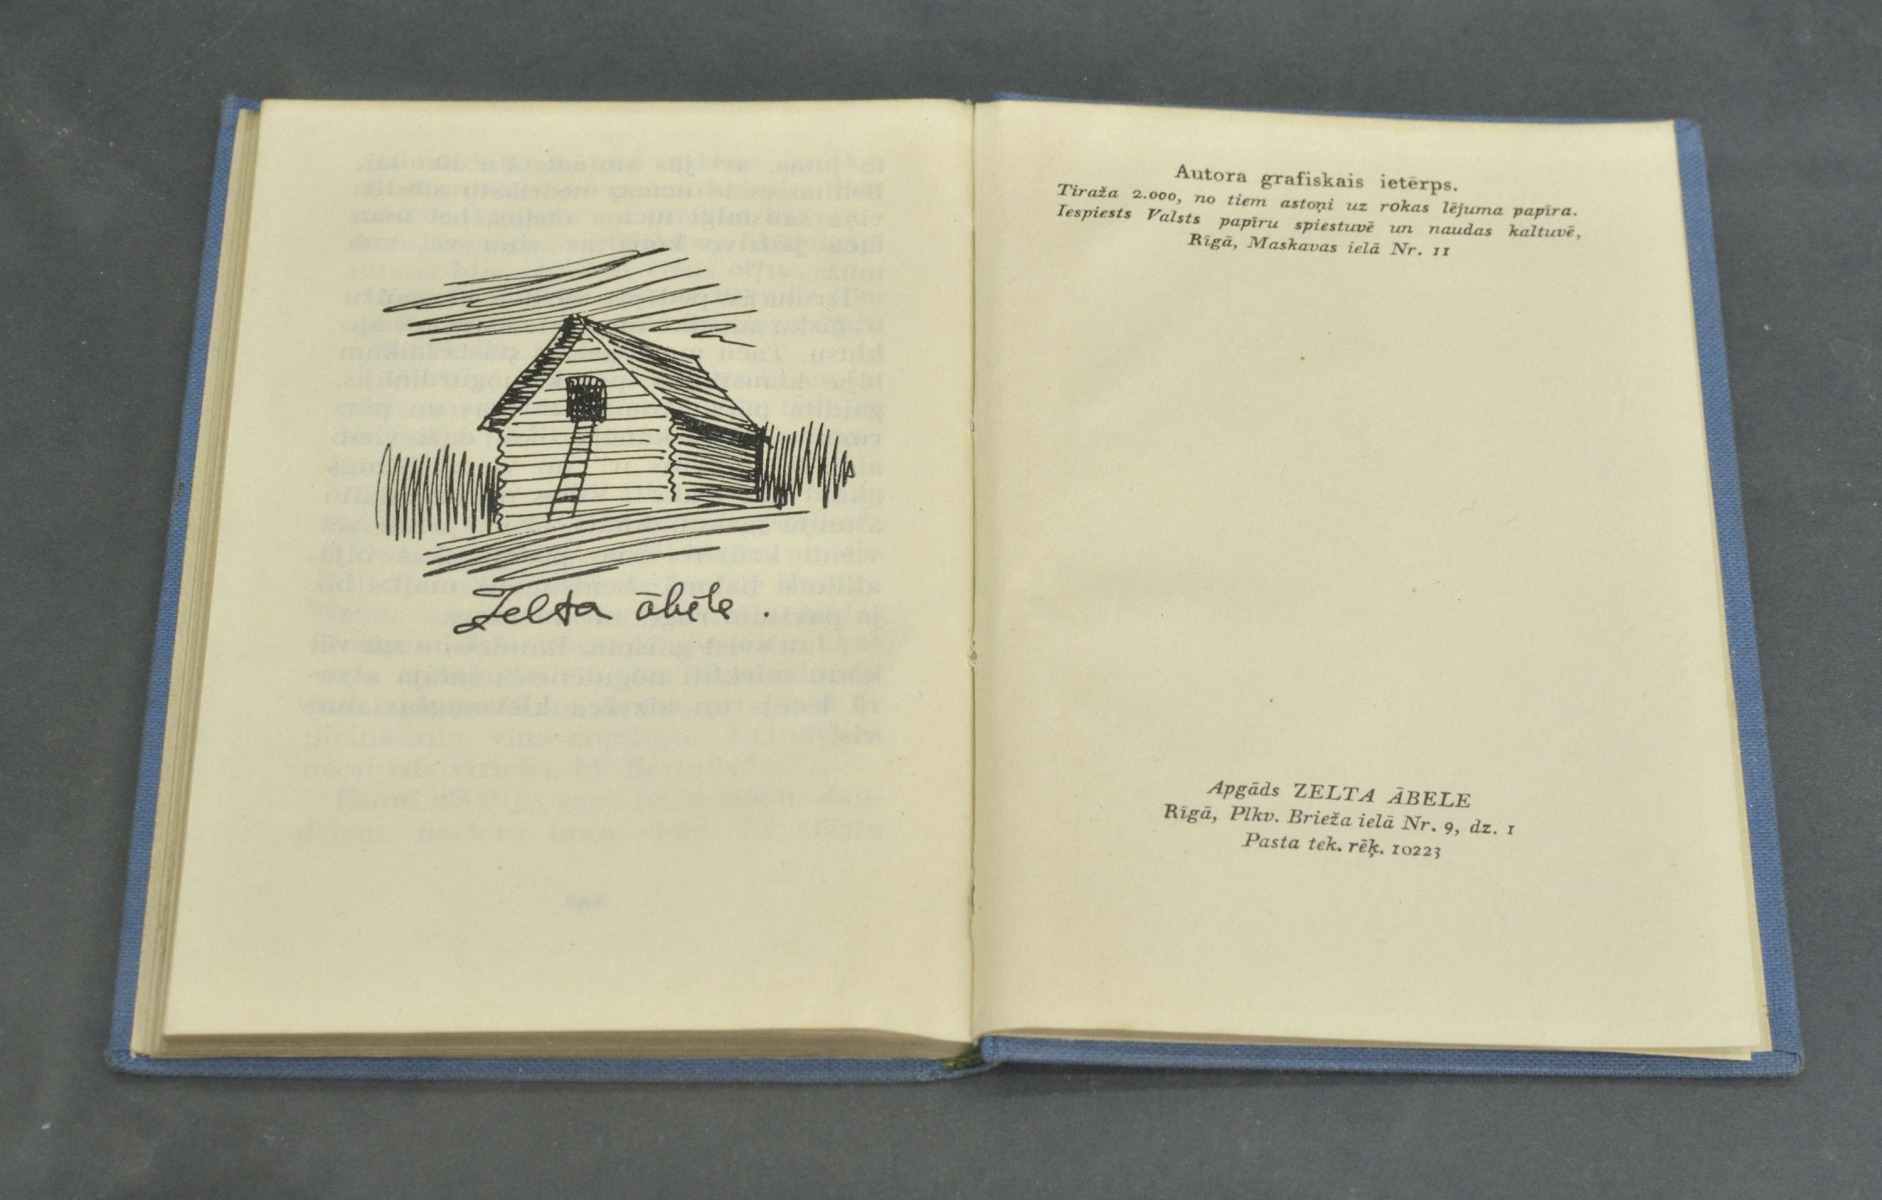 Zelta ābele.
Autora grafiskais ietērps.
Tiraža 2.000, no tiem astoņi uz rokas lējuma papīra.
Iespiests Valsts papīru spiestuvē un naudas kaltuvē,
Rīgā, Maskavas ielā Nr. 11
Apgāds ZELTA ĀBELE
Rīgā, Plkv. Brieža ielā Nr. 9, dz. 1
Pasta tek. rēķ. 10223